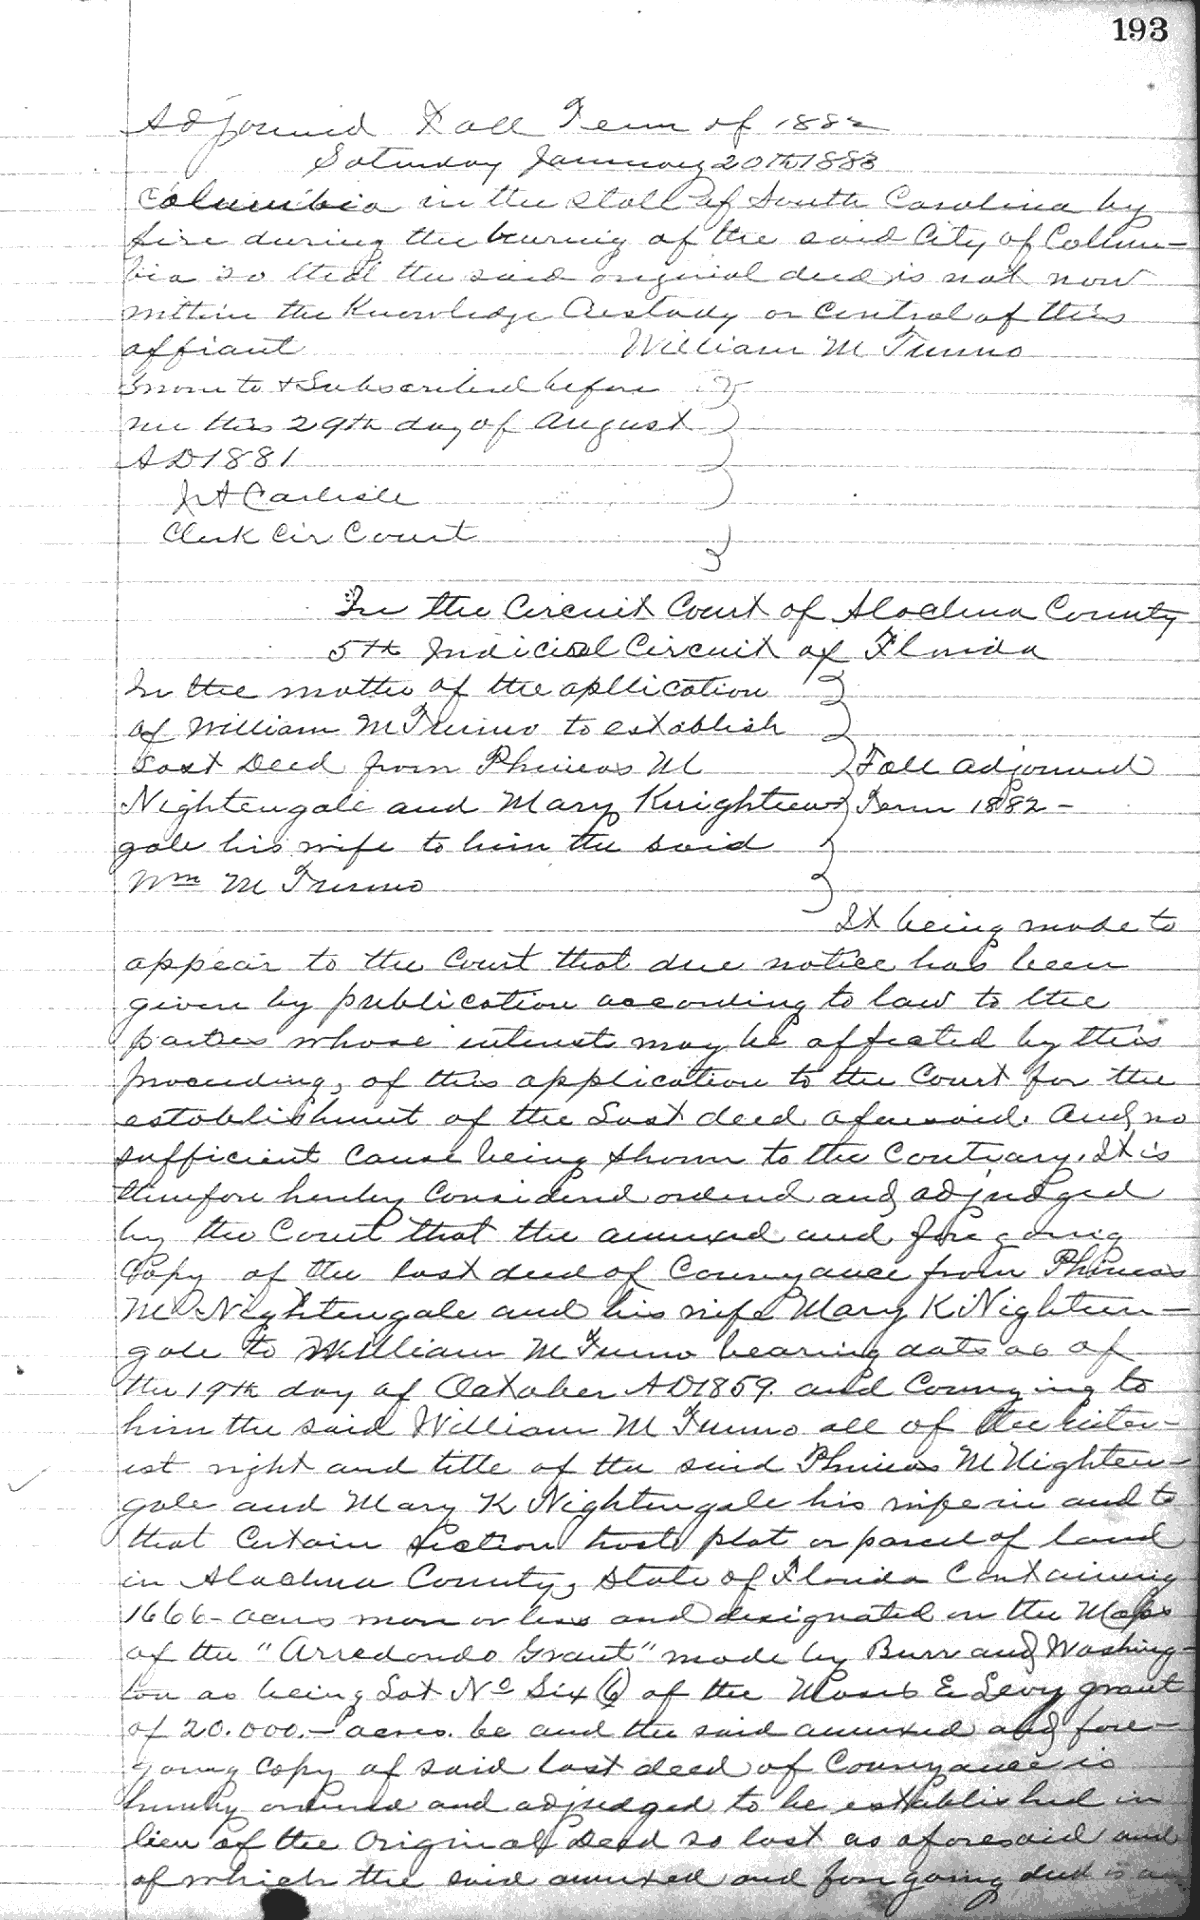 193
Adjourned Fall Term of 1882
Saturday January 20th 1883
Columbia in the State of South Carolina by
fire during the burning of the said City of Colum-
bia so that the said original deed is not now
within the Knowledge Custody or control of this
affiant William M Tunno
Sworn to & Subscribed before
me this 29th day of August
AD 1881
J A Carlisle
Clerk Cir Court
In the Circuit Court of Alachua County
5th Judicial Circuit of Florida
In the matter of the apllication
of William M Tunno to establish
Lost Deed from Phineas M Fall adjourned
Nightengale and Mary K nighten Term 1882-
gale his wife to him the said
Wm M Tunno
It being made to
appear to the Court that due notice has been
given by publication according to law to the
parties whose interest may be affected by this
proceeding, of this application to the Court for the
establishment of the Lost deed aforesaid. And no
sufficient Cause being shown to the Contrary. It is
therefore hereby Considered ordered and adjudged
by the Court that the annexed and fore going
Copy of the lost deed of Conveyance from Phineas
M Nightengale and his wife Mary K Nighten-
gale to William M Tunno bearing date as of
the 19th day of October AD 1859. and Conveying to
him the said William M Tunno all of the inter-
est right and title of the said Phineas M Nighten-
gale and Mary K Nightengale his wife in and to
that Certain section plat or parcel of land
in Alachua County, State of Florida Containing
1666- acres more or less and designated on the Maps
of the "Arredondo Grant" made by Burr and Washing-
ton as being Lot No Six (6) of the Moses E Levy grant
of 20.000.- acres. be and the said annexed and fore-
going Copy of said lost deed of Conveyance is
hereby ordered and adjudged to be established in
lieu of the Original Deed so lost as aforesaid and
of which the said annexed and fore going deed is a